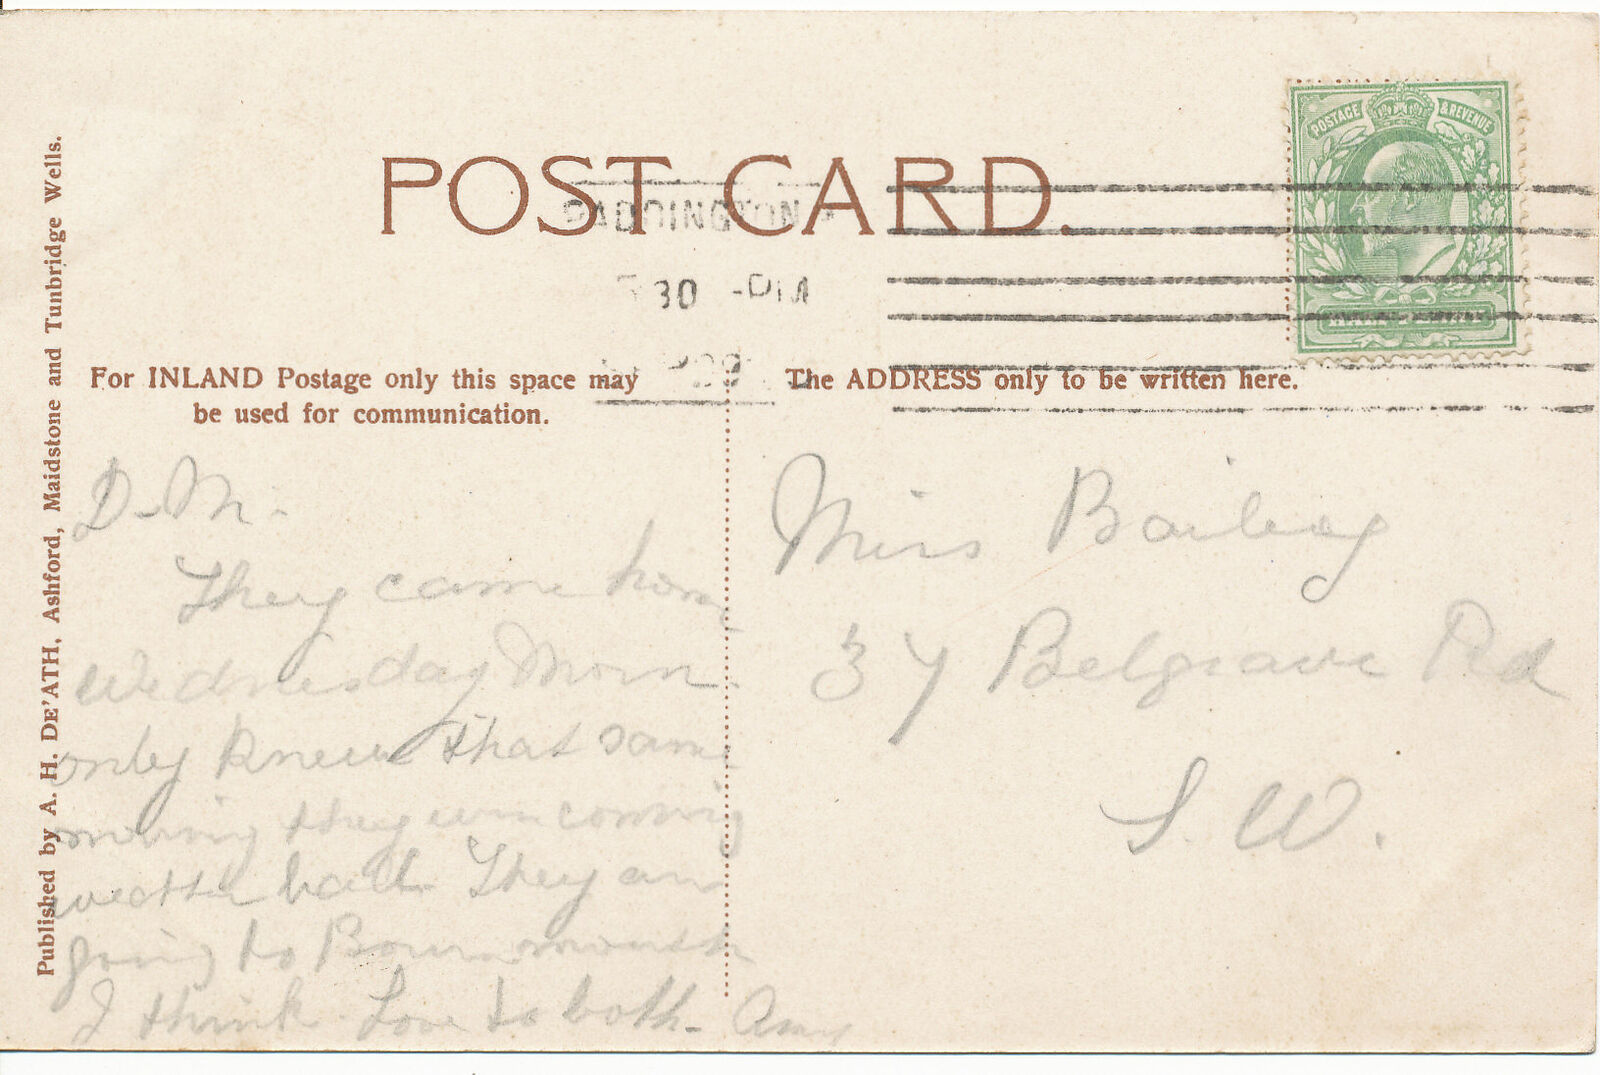 POST CARD.
POSTAGE & REVENUE
PADDINGTON
30 PM
For INLAND Postage only this space may
be used for communication.
The ADDRESS only to be written here.
Published by A. H. DE'ATH, Ashford, Maidstone and Tunbridge Wells.
D. M.
They came home
Wednesday Morn.
only knew that same
morning they were coming
weather bad. They are
going to Bournemouth
I think. Love to both. Amy
Miss Bailey
37 Belgrave Rd
S. W.